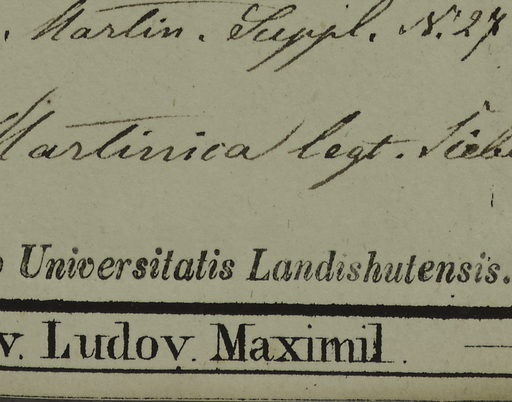 . Martin. Suppl. N. 27
Martinica legt. Siebe
Universitatis Landishutensis.
v. Ludov. Maximil.